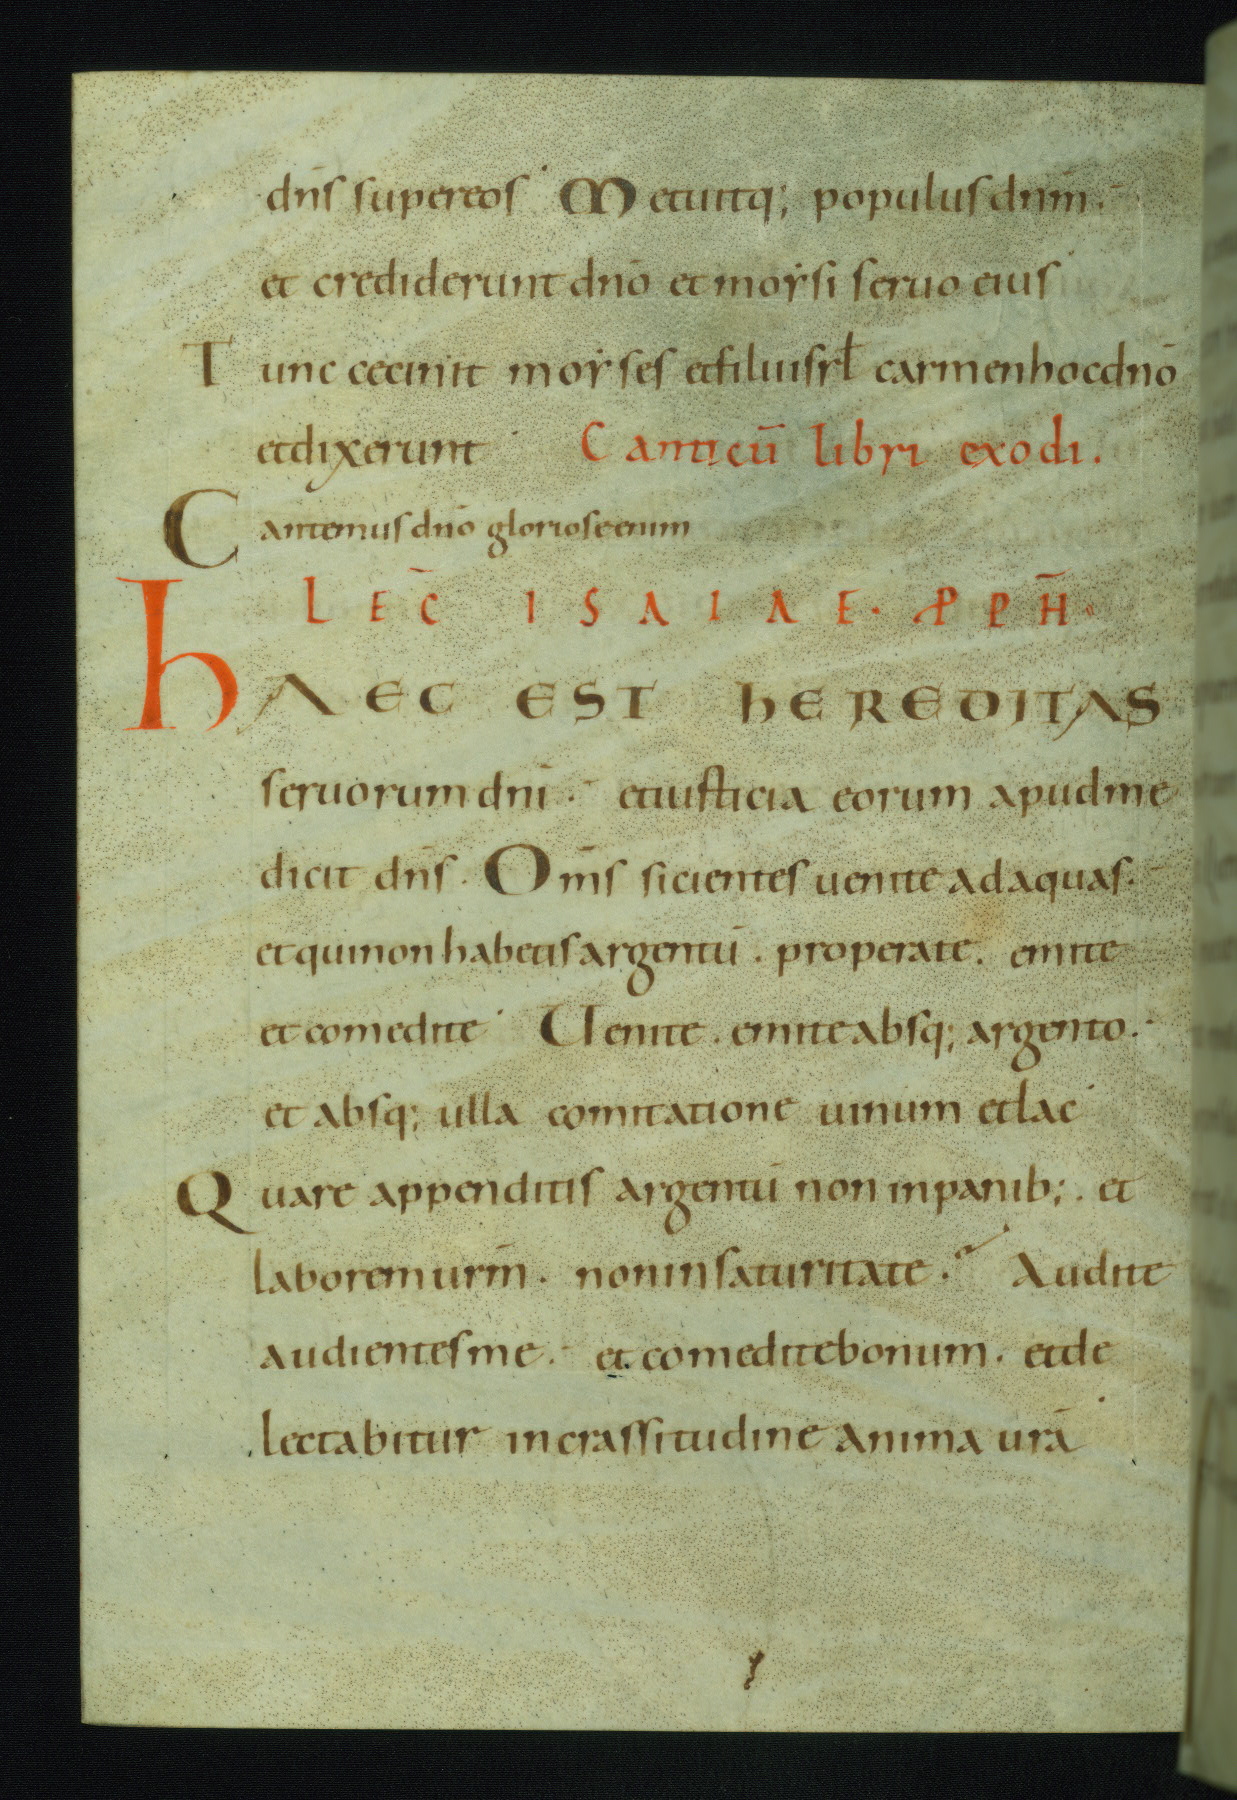 dn̄s super eos Metuitq; populus dnm̄.
et crediderunt dnō et moẏsi seruo eius
Tunc cecinit moẏses et filii isrł carmen hoc dnō
et dixerunt Canticū libri exodi.
Cantemus dnō gloriose enim
LEC̄ ISAIAE. PPH̄
HAEC EST HEREDITAS
seruorum dnī. et iusticia eorum apud me
dicit dn̄s. Om̄s sicientes uenite ad aquas.
et qui non habetis argentū. properate. emite
et comedite Uenite. emite absq; argento.
et absq; ulla comitatione uinum et lac
Quare appenditis argentū non in panib;. et
laborem urm̄. non in saturitate. Audite
audientes me. et comedite bonum. et de
lectabitur in crassitudine anima urā